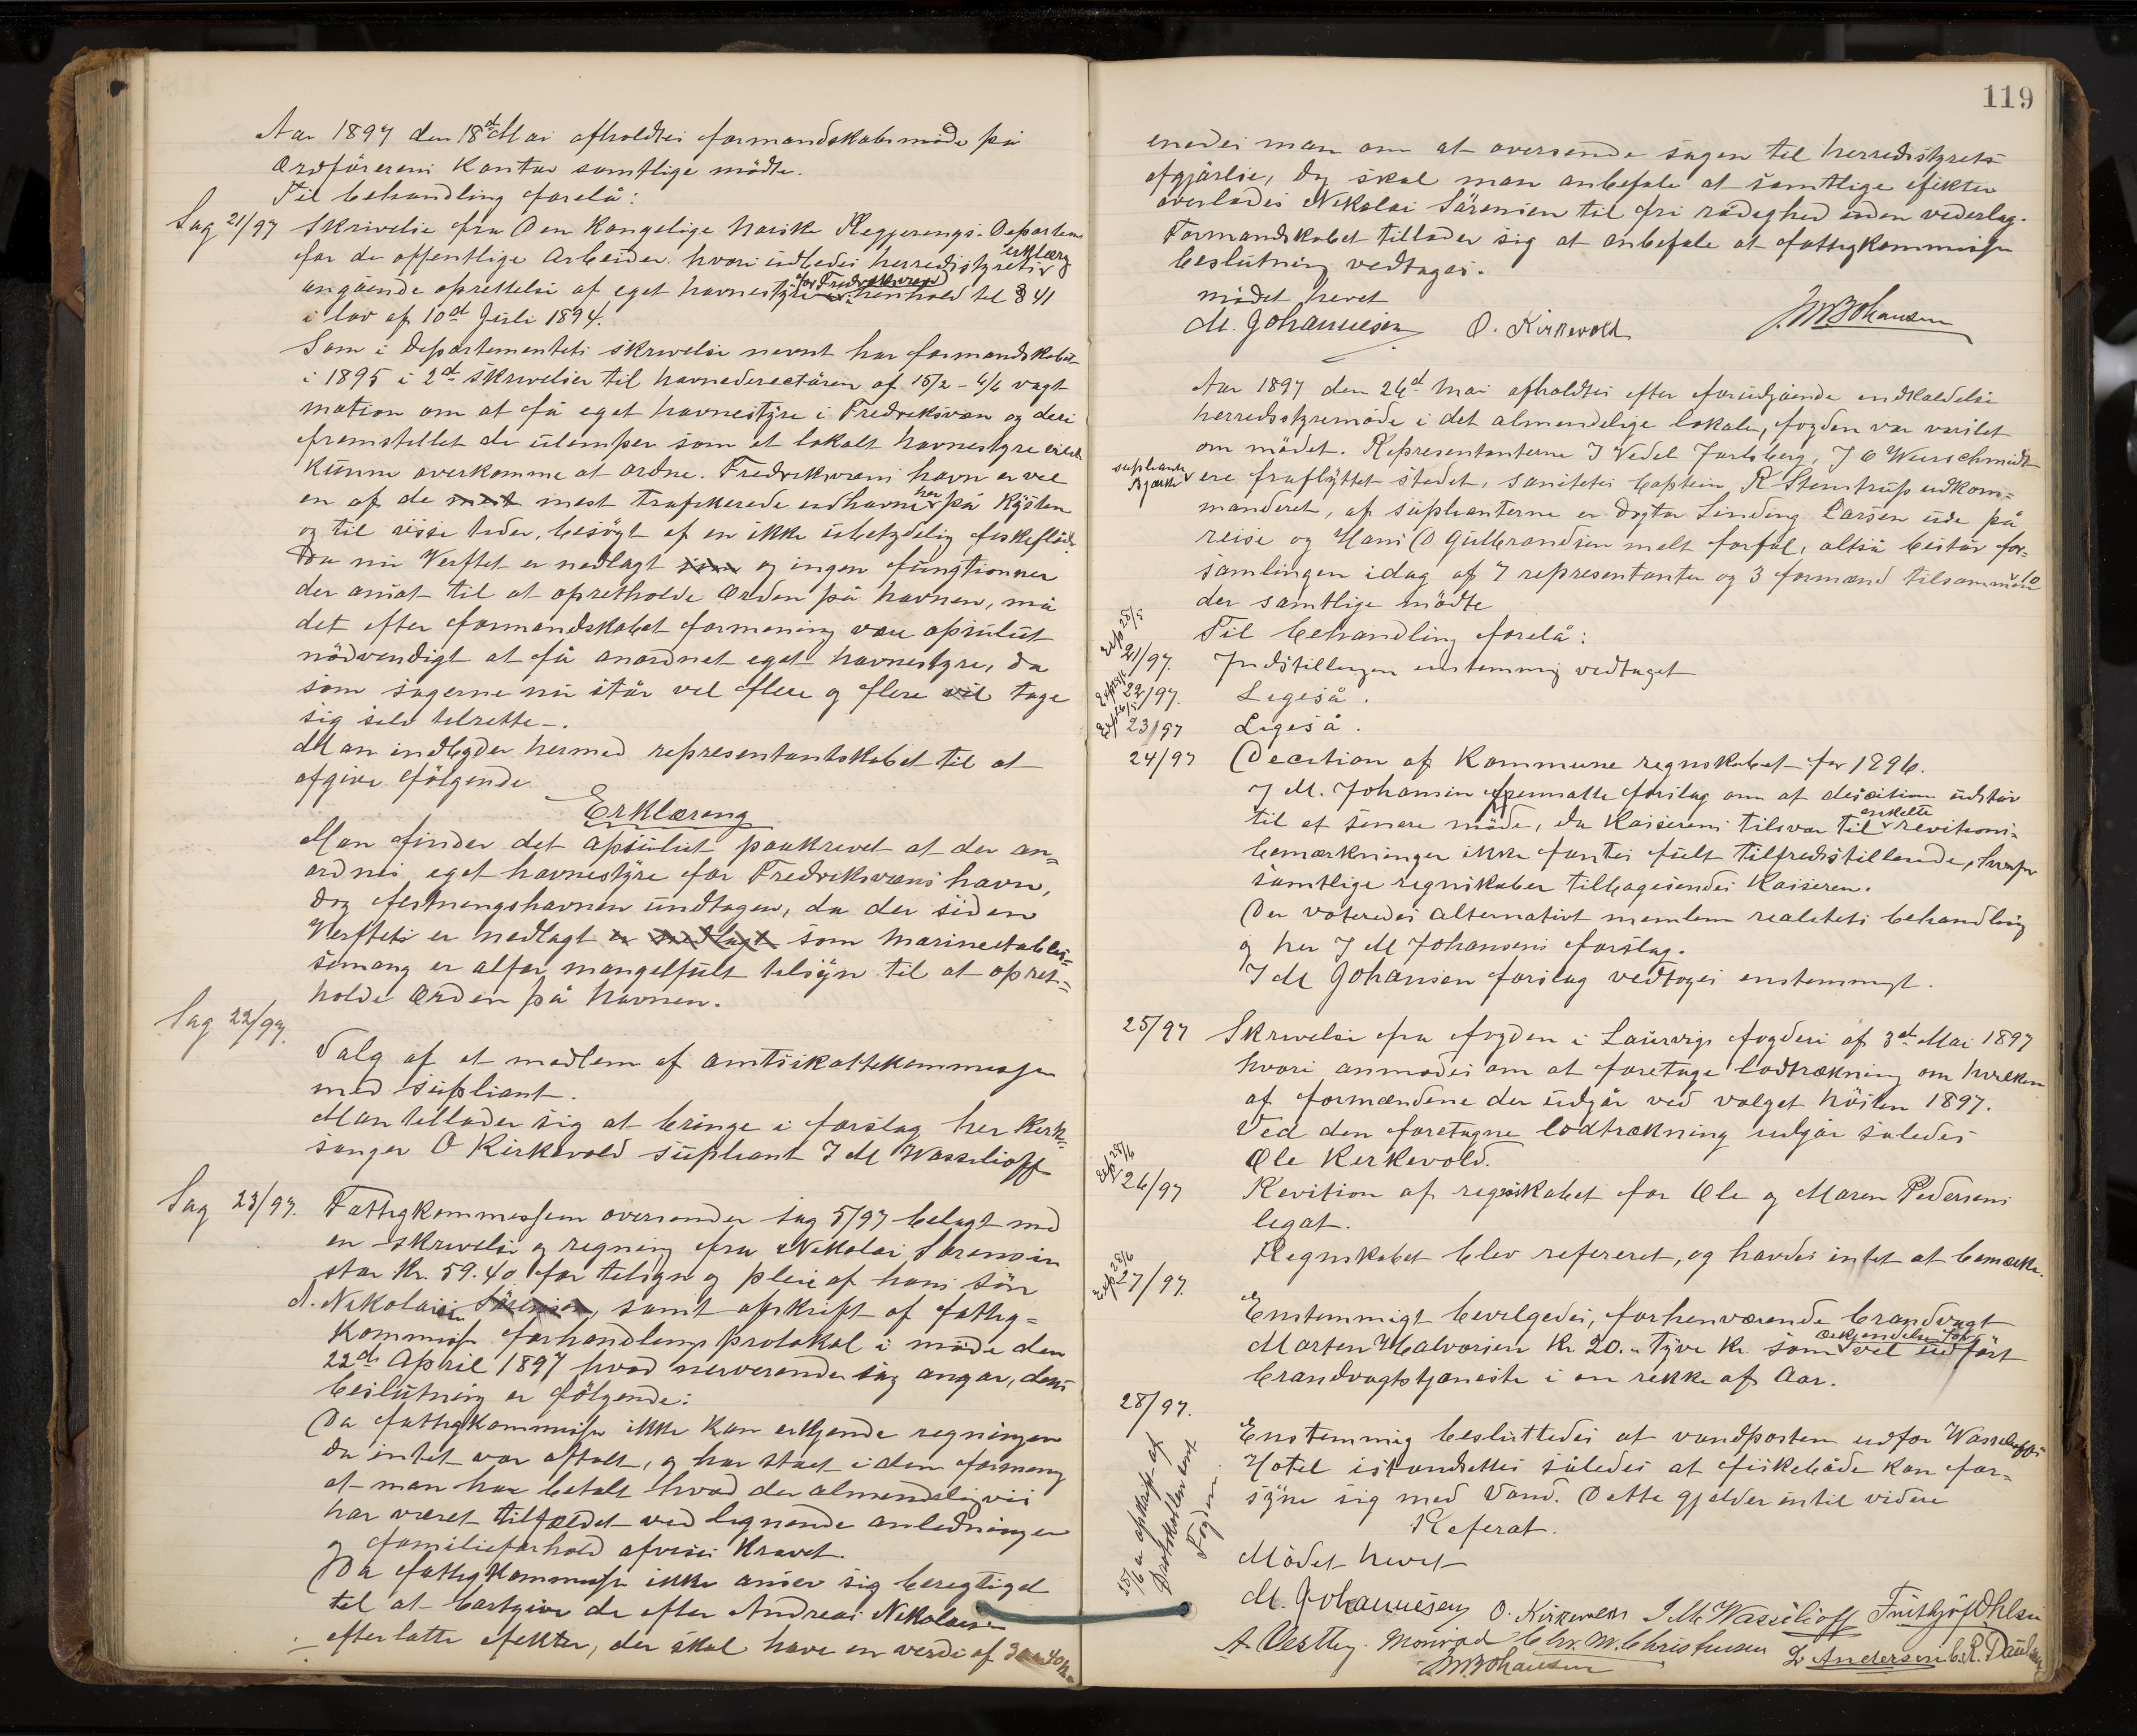 Aar 1897 den 18de Mai afholdtes formandskabsmöde på
Ordförerens Kontor samtlige mödte.
Til behandling forelå:
Sag 21/97 Skrivelse fra Den Kongelige Norske Regjerings. Departem
for de offentlige Arbeider hvori udbedes herredstyrets erklæring
angående oprettelse af eget havnestyre for Fredriksværn i henhold til § 41
i lov af 10de Juli 1894.
Som i Departementets skrivelse nevnt har formandskabet
i 1895 i 2de skrivelser til havnederectören af 15/2 - 4/6 vagt
motion om at få eget havnestyre i Fredriksværn og deri
fremstillet de ulemper som et lokalt havnestyre vilde
kunne overkomme at ordne. Fredriksværns havn er vel
en af de mest mest trafikerede udhavne her på Kysten
og til visse tider, besögt af en ikke ubetydelig fiskeflåde.
Da nu Verftet er nedlagt som og ingen fungtionner
der ansat til at opretholde Orden på havnen, må
det efter formandskabet formening være apsulut
nödvendigt at få anordnet eget havnestyre, da
som sagerne nu står vel flere og flere vil tage
sig selv tilrette -.
Man indbyder hermed representantskabet til at
afgive fölgende
Erklæreng
Man finder det apsulut paakrevet at der an=
ordnes eget havnestyre for Fredriksværns havn,
dog festningshavnen undtagen, da der siden
Verftets er nedlagt er nedlagt som marineetablis=
semang er alfor mangelfult tilsyn til at opret=
holde Orden på havnen.
Sag 22/97.
Valg af et medlem af amtsskattekommissn
med supliant.
Man tillader sig at bringe i forslag her Kirk=
sanger O Kirkevold supleant J M Wassilioff
Sag 23/97. Fattigkommissjonen oversender sag 5/97 belagt med
en skrivelse og regning fra Nikolai Sörensen
stor Kr. 59.40 for tilsyn og pleie af hans sön
A. Nikolaisen Sörensen, samt afskrift af fattig=
kommissn forhandlings protokol i möde den
22de April 1897 hvad nerverende sag angar, dens
beslutning er fölgende:
Da fattigkommissn ikke kan erkjende regningen
da intet var aftalt, og har staet i den formening
at man har betalt hvad der almendeligvis
har været tilfældet ved lignende anledninger
og familieforhold afvises Kravet.
Da fattigkommissn ikke anser sig beregtiget
til at bortgive de efter Andreas Nikolaisen
efterlatte efekter, der skal have en verdi af 30 a 40 Kr
119
enedes man om at oversende sagen til herredstyrets
afgjörelse, dog skal man anbefale at samtlige efekter
overlades Nikolai Sörensen til fri rådighed uden vederlag.
Formandskabet tillader sig at anbefale at fattigkommissn
beslutning vedtages.
mödet hevet
M. Johannesen O. Kirkevold J. M. Johansen
Aar 1897 den 26de Mai afholdtes efter forudgående indkaldelse
herredsstyremöde i det almendelige lokale, fogden var varslet
om mödet. Representanterne J Vedel Jarlsberg, J C Weerschmidt
supleant Bjærke ere fraflyttet stedet, sanitets Captein R Stenstrup udkom=
manderet, af supleanterne er dogtor Linding Larsen ude på
reise og Hans O Gulbrandsen melt forfal, altså består for=
samlingen idag af 7 representanter og 3 formænd tilsammen 10
der samtlige mödte
Til behandling forelå:
Exp 28/5
21/97. Indstillingen enstemmig vedtaget
22/97. Ligeså.
23/97 Ligeså.
24/97 Decition af Kommune regnskabet for 1896.
J M. Johansen fremsatte forslag om at desition udstår
til et senere möde, da Kaisereni tilsvar til enkelte revitions=
bemærkninger ikke fantes fult tilfredsstillende, hvorfor
samtlige regnskaber tilbagesendes Kaiseren.
Der voteredes alternativt memlem realitets behandling
og her J M Johansens forslag.
J M Johansen forslag vedtoges enstemmigt.
25/97 Skrivelse fra fogden i Laurvigs fogderi af 3de Mai 1897
hvori anmodes om at foretage lodtrækning om hvilken
af formændene der udgår ved valget hösten 1897.
Ved den foretagne lodtrækning udgår således
Ole Kirkevold.
Exp 28/6
26/97 Revition af regnskabet for Ole og Maren Pedersens
legat.
Regnskabet blev refereret, og havdes intet at bemærke.
Exp 28/6
27/97. Enstemmigt bevilgedes, forhenværende brandvagt
Morten Halvorsen Kr. 20.- tyve Kr. som erkjendelse for vel udfört
brandvagtstjeneste i en rekke af Aar.
28/97. Enstemmig besluttedes at vandposten udfor Wassilioffs
Hotel istandsettes således at fiskebåde kan for=
syne sig med Vand. Dette gjelder intil videre
Referat.
Mödet hevet
afskrift af Protokollen sent Fogden.
M. Johannesen O. Kirkevold J M. Wassilioff Frithjöf Ohlsen
A Vestby. Monrad Chr. M. Christensen L Andersen C. R. Paulsen
J. M. Johansen